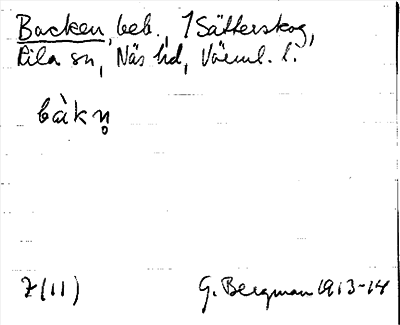 Backen, beb., 1 Sätterskog,
Eila sn, Näs hd, Värml. l.
bàkn̥
7(11) G. Bergman 1913-14